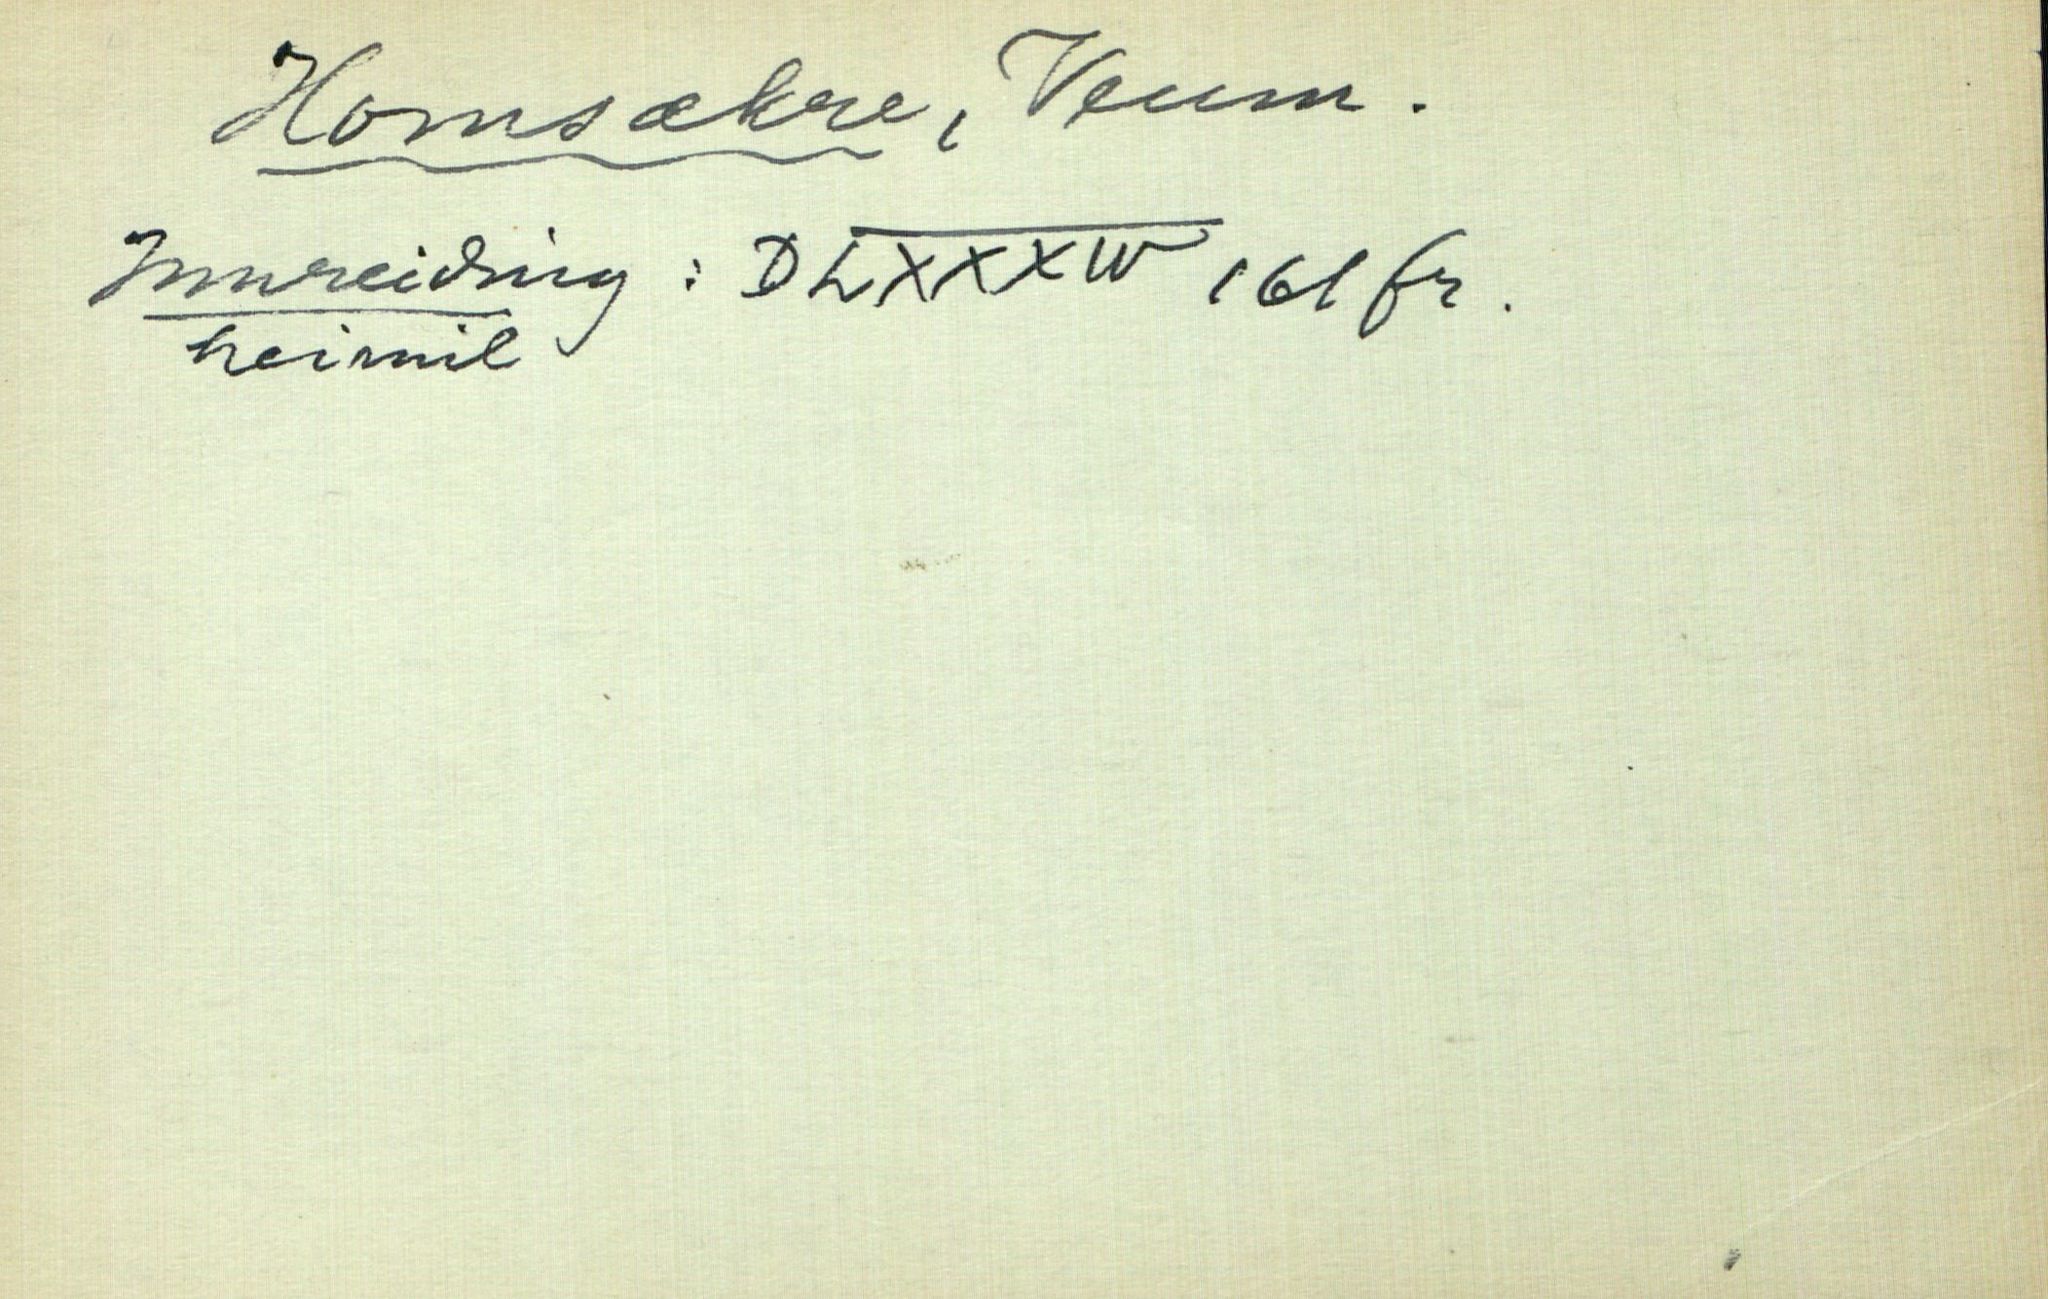 Homsækre, Veum.
Innreiding: DLXXXIV 161 fr.
heimil